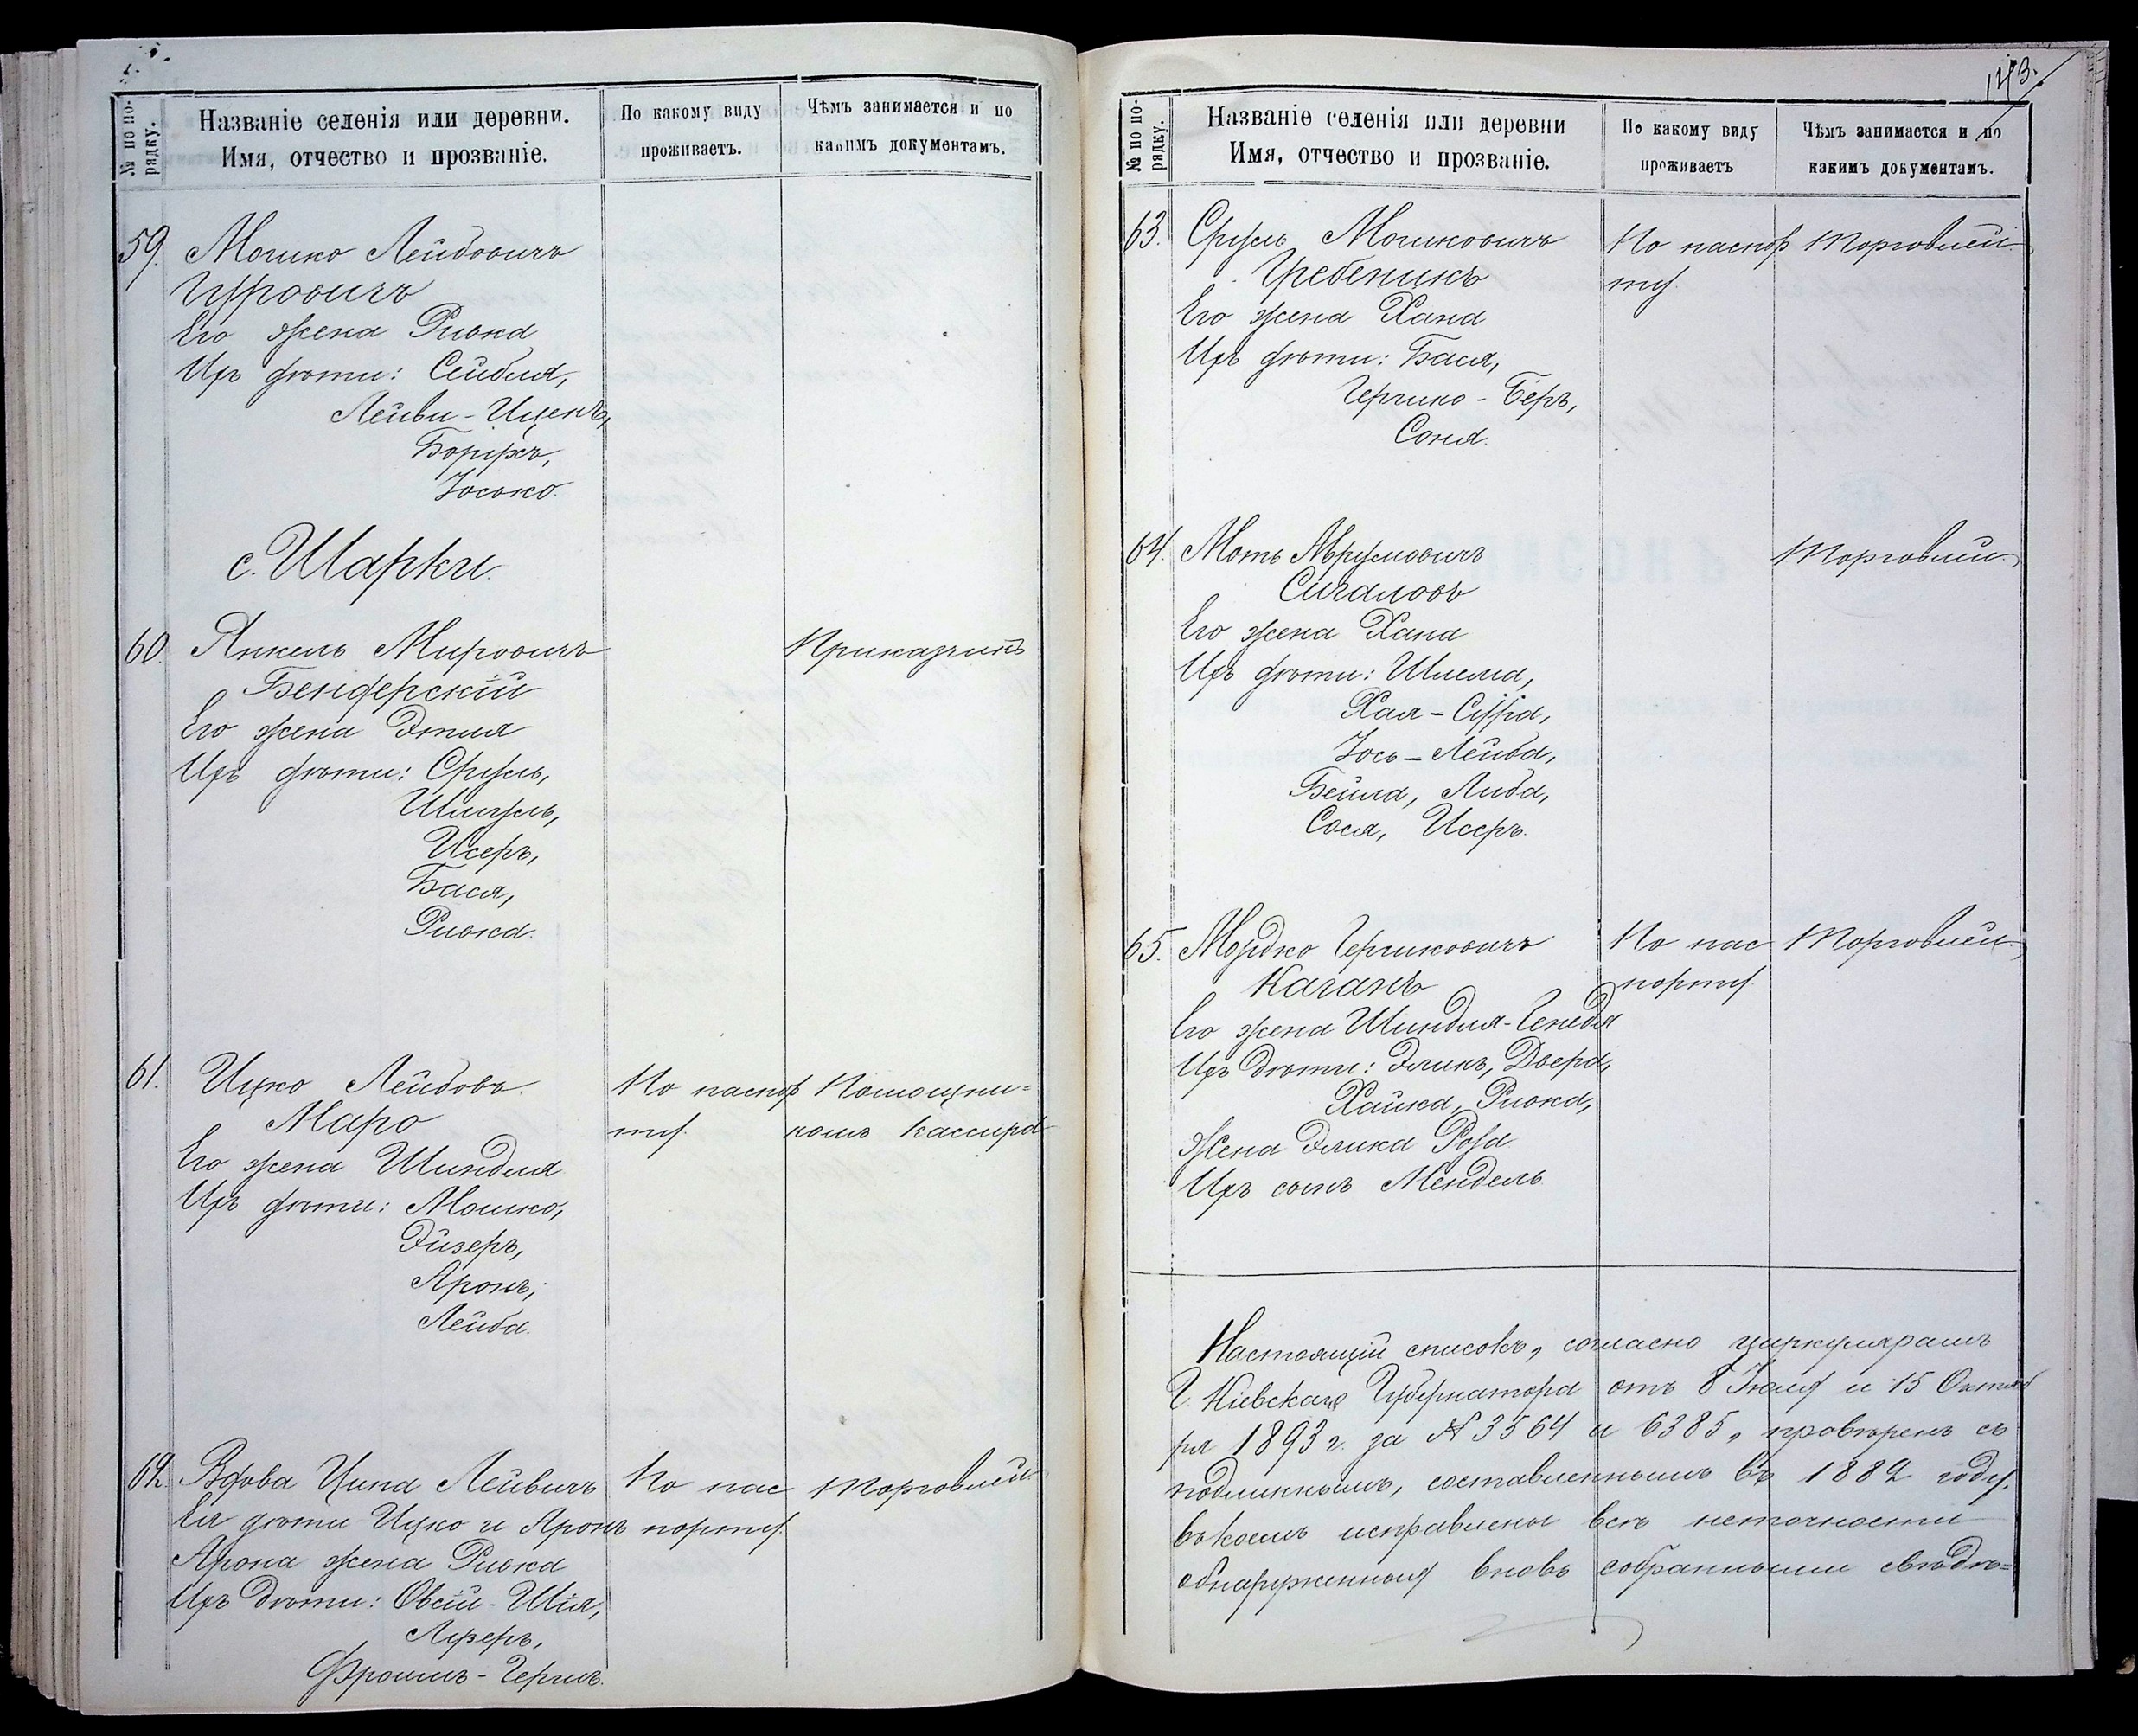 № по по-
рядку.
Названіе селенія или деревни.
Имя, отчество и прозваніе.
По какому виду
проживаетъ.
Чѣмъ занимается и по
какимъ документамъ.
59. Мошко Лейбовичъ
Гуровичъ
Его жена Ривка
Ихъ дѣти: Сейбля,
Лейви-Ицекъ,
Борухъ,
Іосько.
с. Шарки.
60. Янкель Мировичъ Приказчикъ
Бендерскій
Его жена Этля
Ихъ дѣти: Сруль,
Шмуль,
Исеръ,
Бася,
Ривка.
61. Ицко Лейбовъ По паспор Помощни-
Маро ту. комъ кассира
Его жена Шиндля
Ихъ дѣти: Мошко,
Эйзеръ,
Аронъ,
Лейба.
62. Вдова Ципа Лейвичъ По пас Торговлей
Ея дѣти Ицко и Аронъ порту.
Арона жена Ривка
Ихъ дѣти: Овсій-Шія,
Лузеръ,
Фроимъ-Гершъ.
143.
№ по по-
рядку.
Названіе селенія или деревни
Имя, отчество и прозваніе.
По какому виду
проживаетъ
Чѣмъ занимается и по
какимъ документамъ.
63. Сруль Мошковичъ По паспор Торговлей
Гребеникъ ту.
Его жена Хана
Ихъ дѣти: Бася,
Гершко-Беръ,
Соня.
64. Моть Аврумовичъ Торговлей
Сигаловъ
Его жена Хана
Ихъ дѣти: Шлема,
Хая-Сура,
Іось-Лейба,
Бейла, Либа,
Сося, Исеръ.
65. Мордко Гершковичъ По пас Торговлей
Каганъ порту.
Его жена Шиндля-Генедля
Ихъ дѣти: Эликъ, Двера,
Хайка, Ривка,
Жена Элика Роза
Ихъ сынъ Мендель
Настоящій списокъ, согласно циркулярамъ
Г. Кіевскаго Губернатора отъ 8 Іюля и 15 Октяб
ря 1893 г. за № 3564 и 6385, провѣренъ съ
подлиннымъ, составленнымъ въ 1882 году,
въ коемъ исправлены всѣ неточности
обнаруженныя вновь собранными свѣдѣ=